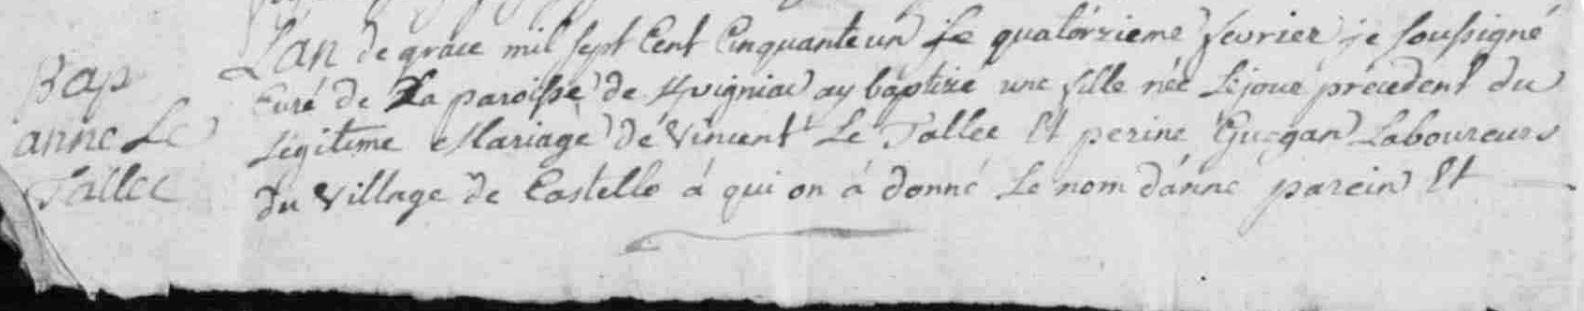 Bap
anne Le
Tallec
L'an de grace mil sept Cent Cinquante un le quatorzieme fevrier je soussigné
Curé de La paroisse de ay baptizé une fille née Le jour précedent du
Légitime Mariage de Vincent Le Tallec Et perine Guegan Laboureurs
du Village de Castello á qui on á donné Le nom d'anne parein Et